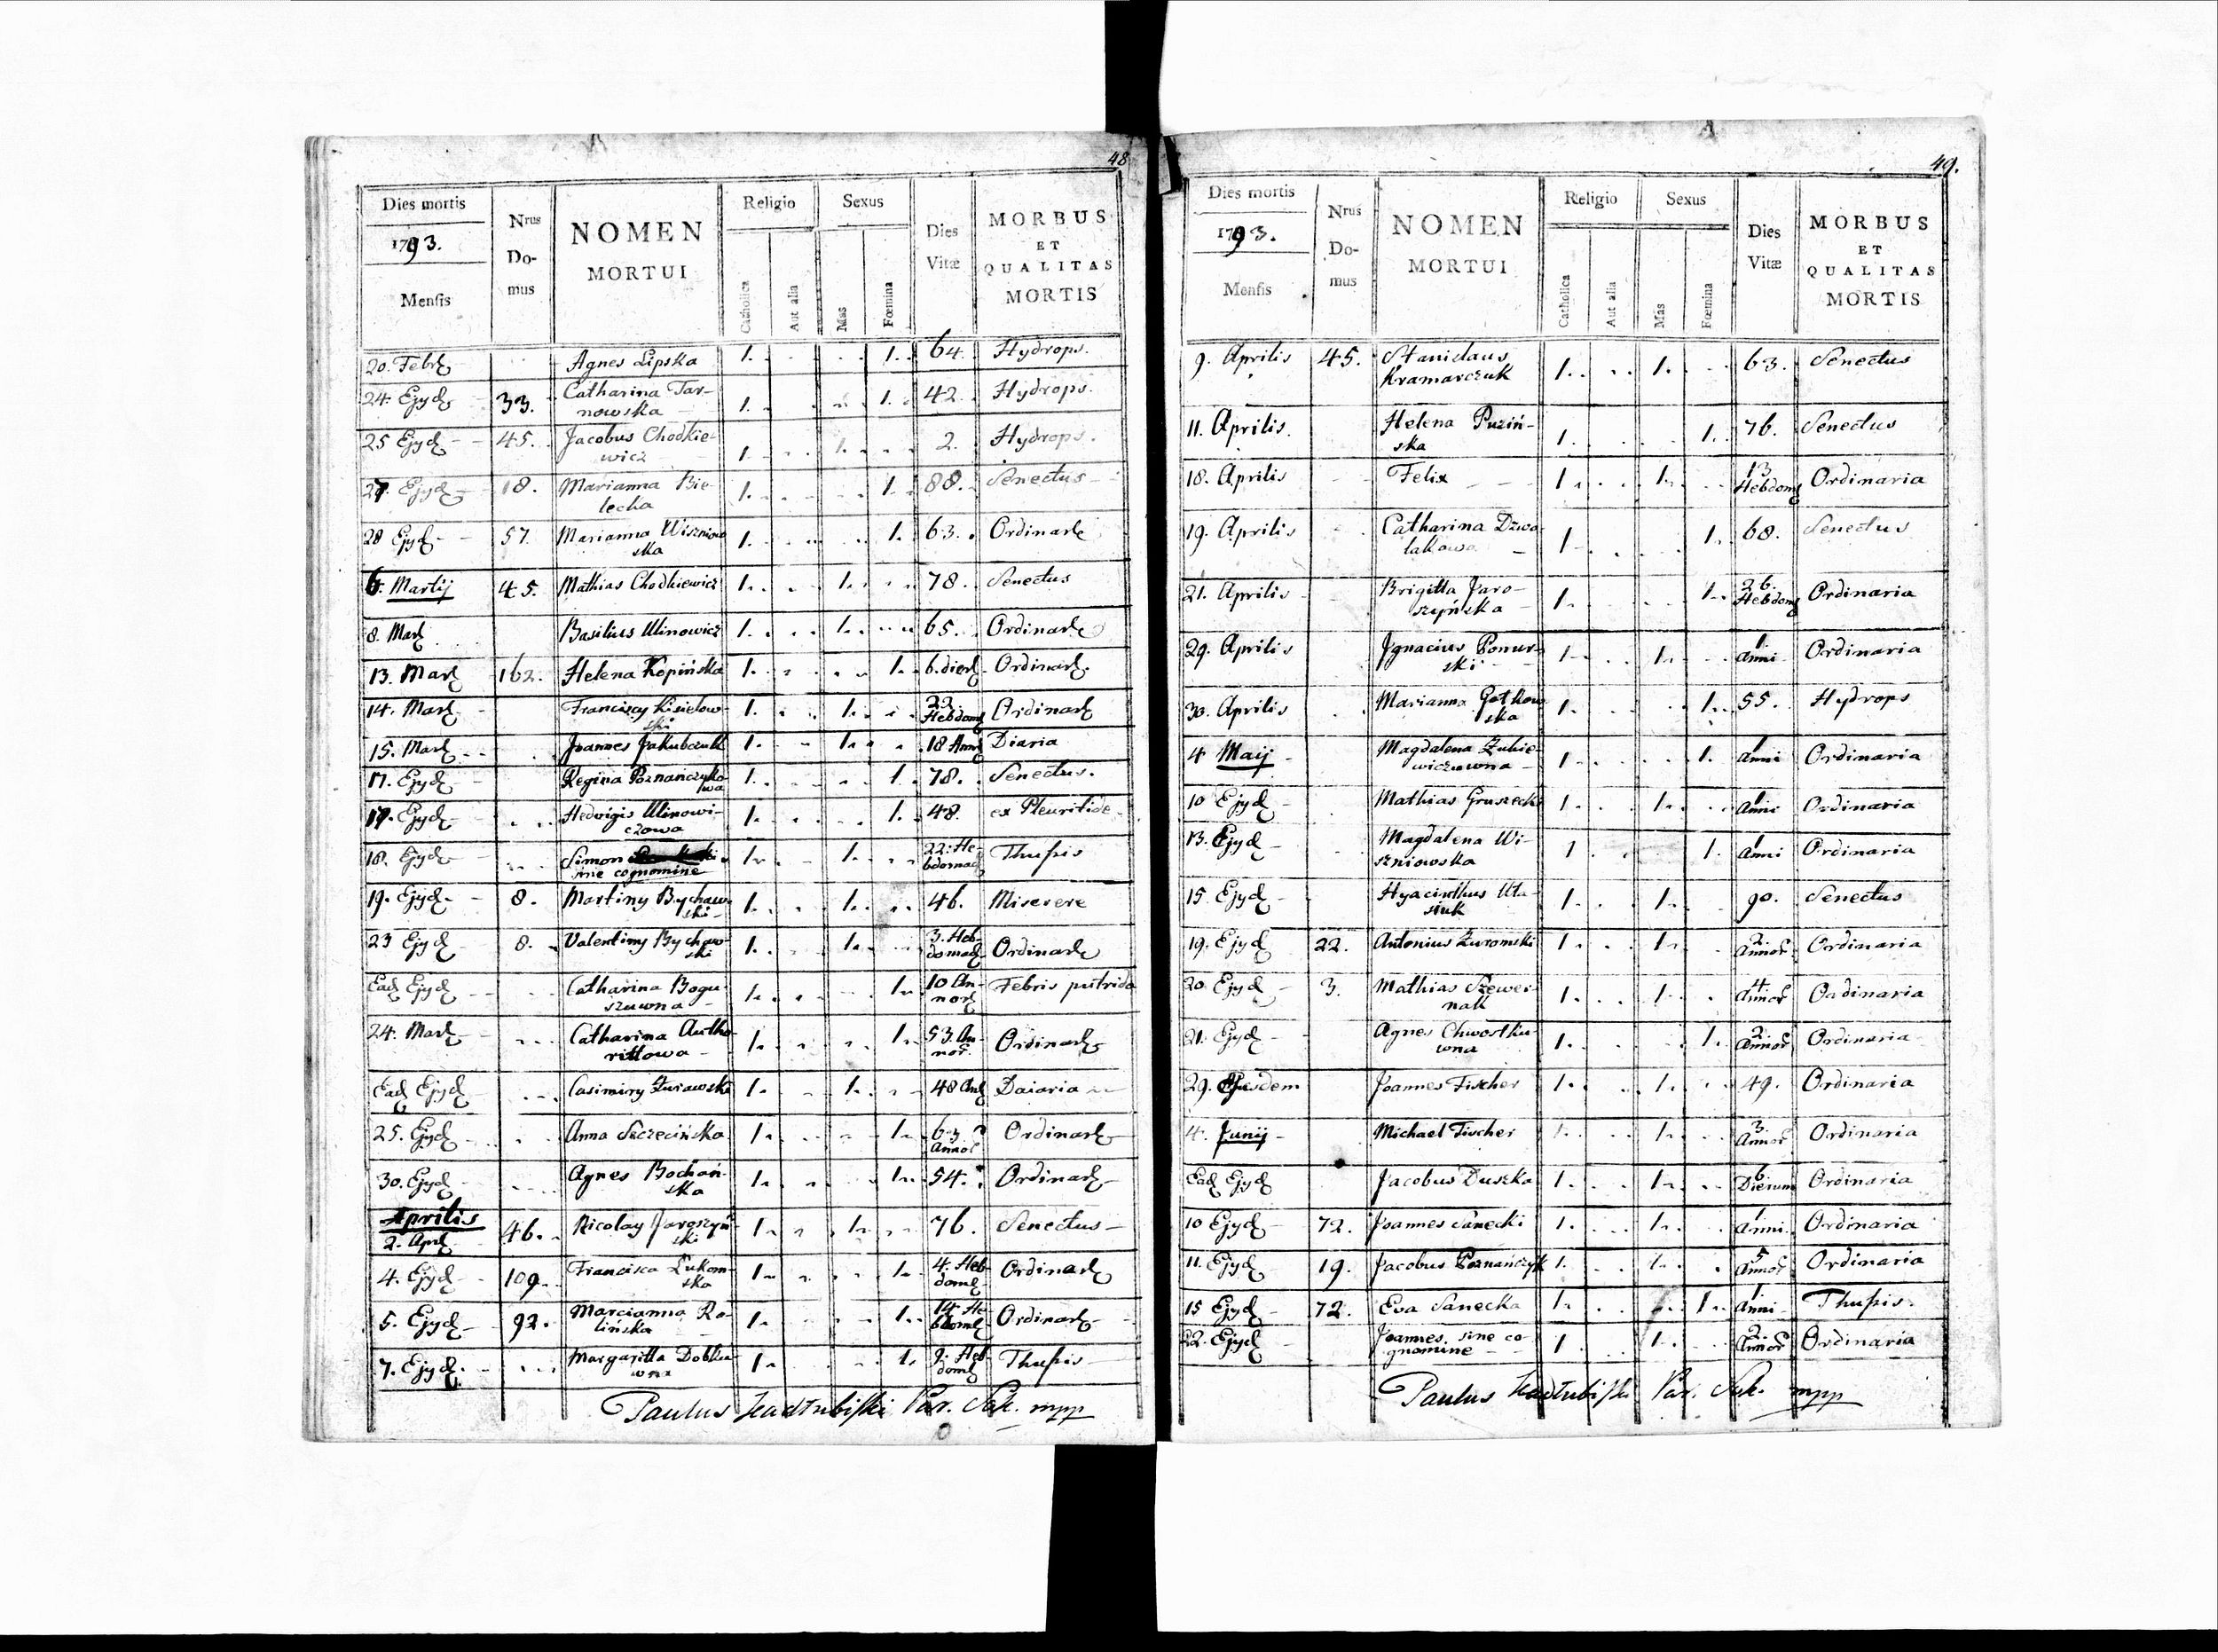 48
Dies mortis
1793.
Mensis
Nrus Do- mus
NOMEN MORTUI
Religio
Catholica
Aut alia
Sexus
Mas
Fœmina
Dies Vitæ
MORBUS ET QUALITAS MORTIS
20. Febr. Agnes Lipska 1. 1. 64. Hydrops.
24. Ejyd. 33. Catharina Tar-
nowska 1. 1. 42. Hydrops.
25 Ejyd. 45. Jacobus Chodkie-
wicz 1. 1. 2. Hydrops.
27 Ejyd. 18. Marianna Bie-
lecka 1. 1. 88. Senectus
28 Ejyd. 57. Marianna Wisniow
ska 1. 1. 63. Ordinar
6. Martij 45. Mathias Chodkiewicz 1. 1. 78. Senectus
8. Mar Basilius Ulinowicz 1. 1. 65. Ordinar
13. Mar 162. Helena Kopińska 1. 1. 6. dier Ordinar.
14. Mar Franciscy Kisielow-
ski 1. 1. 22 Hebdom Ordinar
15. Mar Joannes Jakubczuk 1. 1. 18 Ann Diaria
17. Ejyd Regina Poznańczyko-
wa 1. 1. 78. Senectus.
17. Ejyd Hedvigis Ulinowi-
czowa 1. 1. 48. ex Pleuritide
18. Ejyd Simon
sine cognomine 1. 1. 22. He-
bdomad Thussis
19. Ejyd 8. Martiny Bychaw-
ski 1. 1. 46. Miserere
23 Ejyd 8. Valentiny Bychaw-
ski 1. 1. 3. Heb-
domad Ordinar
Ead Ejyd Catharina Bogu-
szuwna 1. 1. 10 An-
nor Febris putrida
24. Mar Catharina Autho-
rittowa 1. 1. 53. An-
nor. Ordinar
Ead Ejyd Casimiry Żurawski 1. 1. 48 An Daiaria
25. Ejyd Anna Szczecińska 1. 1. 63
Annor Ordinar
30. Ejyd Agnes Bochań-
ska 1. 1. 54. Ordinar
Aprilis
2. Apr 46. Nicolay Jaroszyń-
ski 1. 1. 76. Senectus
4. Ejyd 109. Francisca Łukom-
ska 1. 1. 4. Heb-
dom Ordinar
5. Ejyd 92. Marcianna Ro-
lińska 1. 1. 14. He-
bdom Ordinar
7. Ejyd. Margaritta Dobku-
wna 1. 1. 9. Heb-
dom Thussis
Paulus Par. mpp
49.
Dies mortis
1793.
Mensis
Nrus Do- mus
NOMEN MORTUI
Religio
Catholica
Aut alia
Sexus
Mas
Fœmina
Dies Vitæ
MORBUS ET QUALITAS MORTIS
9. Aprilis 45. Stanislaus
Kramarczuk 1. 1. 63. Senectus
11. Aprilis. Helena Puziń-
ska 1. 1. 76. Senectus
18. Aprilis Felix 1. 1. 13
Hebdom Ordinaria
19. Aprilis Catharina Dzwo
lakowa 1. 1. 68. Senectus
21. Aprilis Brigitta Jaro-
szyńska 1. 1. 26.
Hebdom Ordinaria
29. Aprilis Jgnacius Ponur-
ski 1. 1. 1
Anni Ordinaria
30. Aprilis Marianna Gotkow
ska 1. 1. 55. Hydrops
4 Maij Magdalena Żukie-
wiczuwna 1. 1. 1
Anni Ordinaria
10 Ejyd Mathias Gruszecki 1. 1. 1
Anni Ordinaria
13. Ejyd Magdalena Wi-
szniowska 1 1. 1
Anni Ordinaria
15 Ejyd Hyacinthus
1. 1. 90. Senectus
19. Ejyd 22. Antonius Żuromski 1. 1. 2
Annor Ordinaria
20. Ejyd 3. Mathias Szewer-
nak 1. 1. 4
Annor Oadinaria
21. Ejyd Agnes Chwostku-
wna 1. 1. 2
Annor Ordinaria
29. Ejusdem Joannes Fischer 1. 1. 49. Ordinaria
4. Junij Michael Fischer 1. 1. 3
Annor Ordinaria
Ead Ejyd Jacobus Duszka 1. 1. 6
Dierum Ordinaria
10 Ejyd 72. Joannes Sanecki 1. 1. 1
Anni Ordinaria
11. Ejyd 19. Jacobus Poznańczyk 1. 1. 5
Annor Ordinaria
15 Ejyd 72. Eva Sanecka 1. 1. 1
Anni Thussis.
22. Ejyd Joannes sine co-
gnomine 1 1. 2
Annor Ordinaria
Paulus Par. mpp